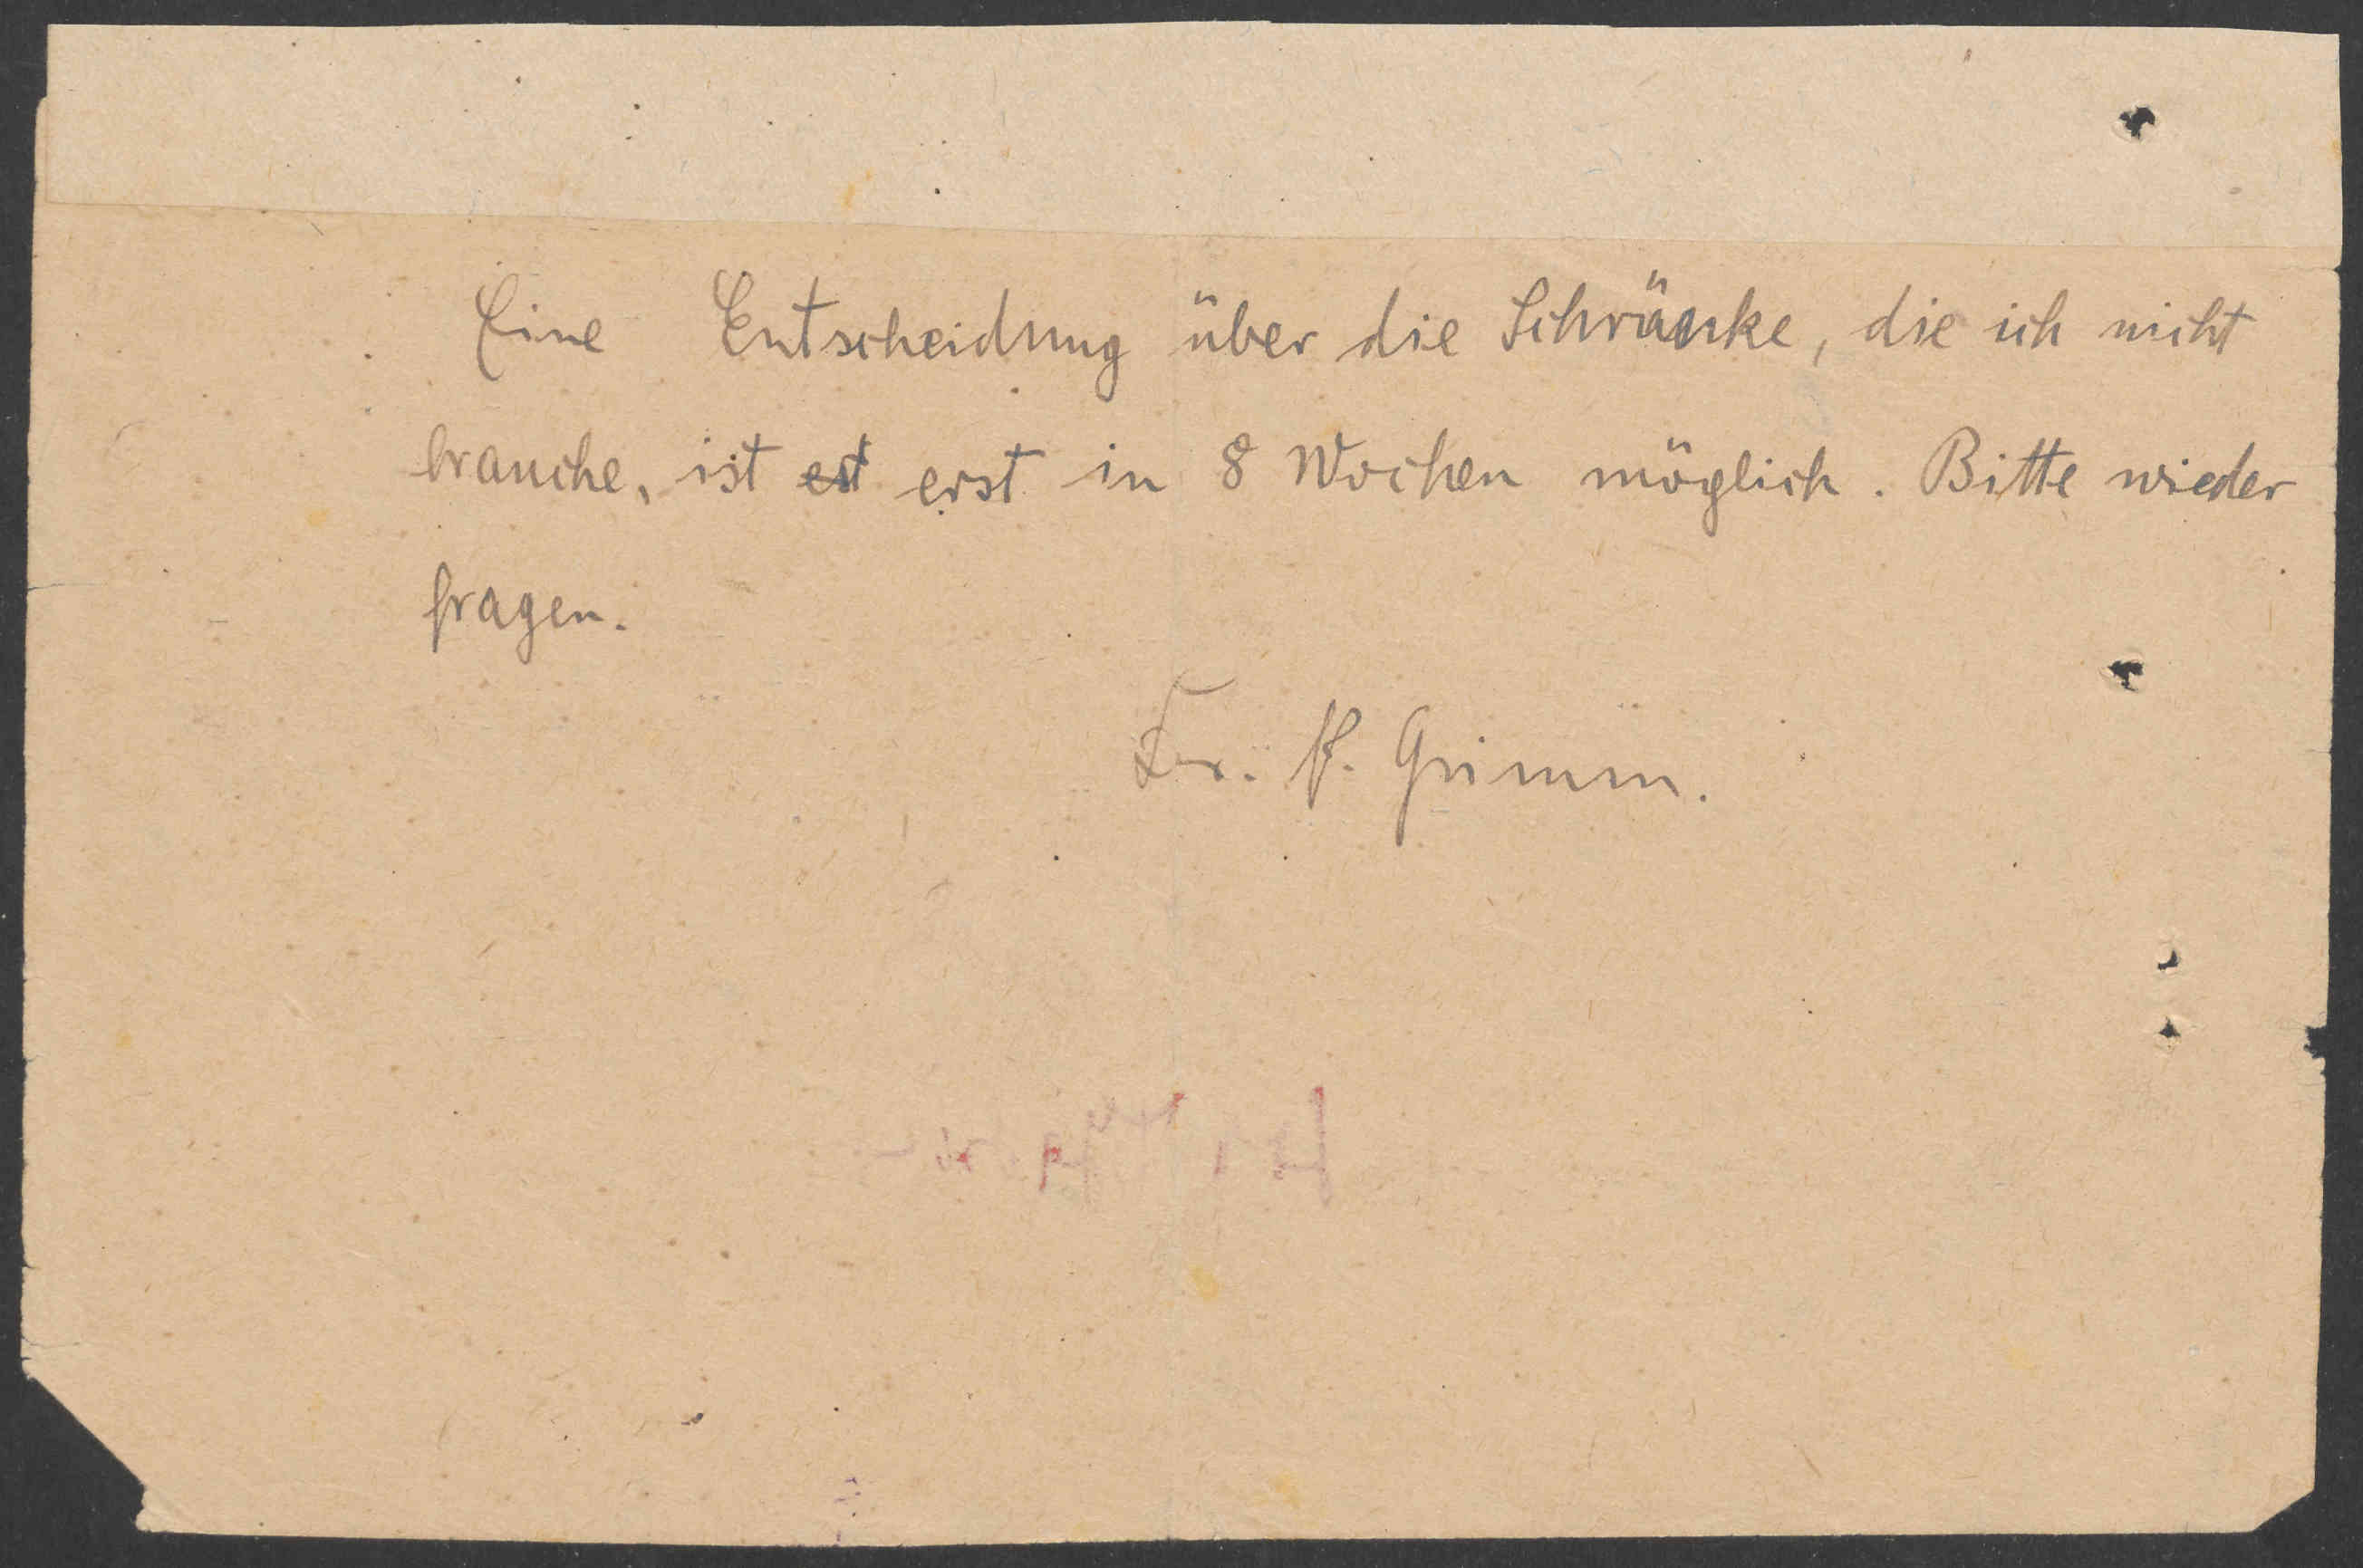 Eine Entscheidung über die Schränke, die ich nicht
brauche, ist est erst in 8 Wochen möglich. Bitte wieder
fragen.
Grimm.